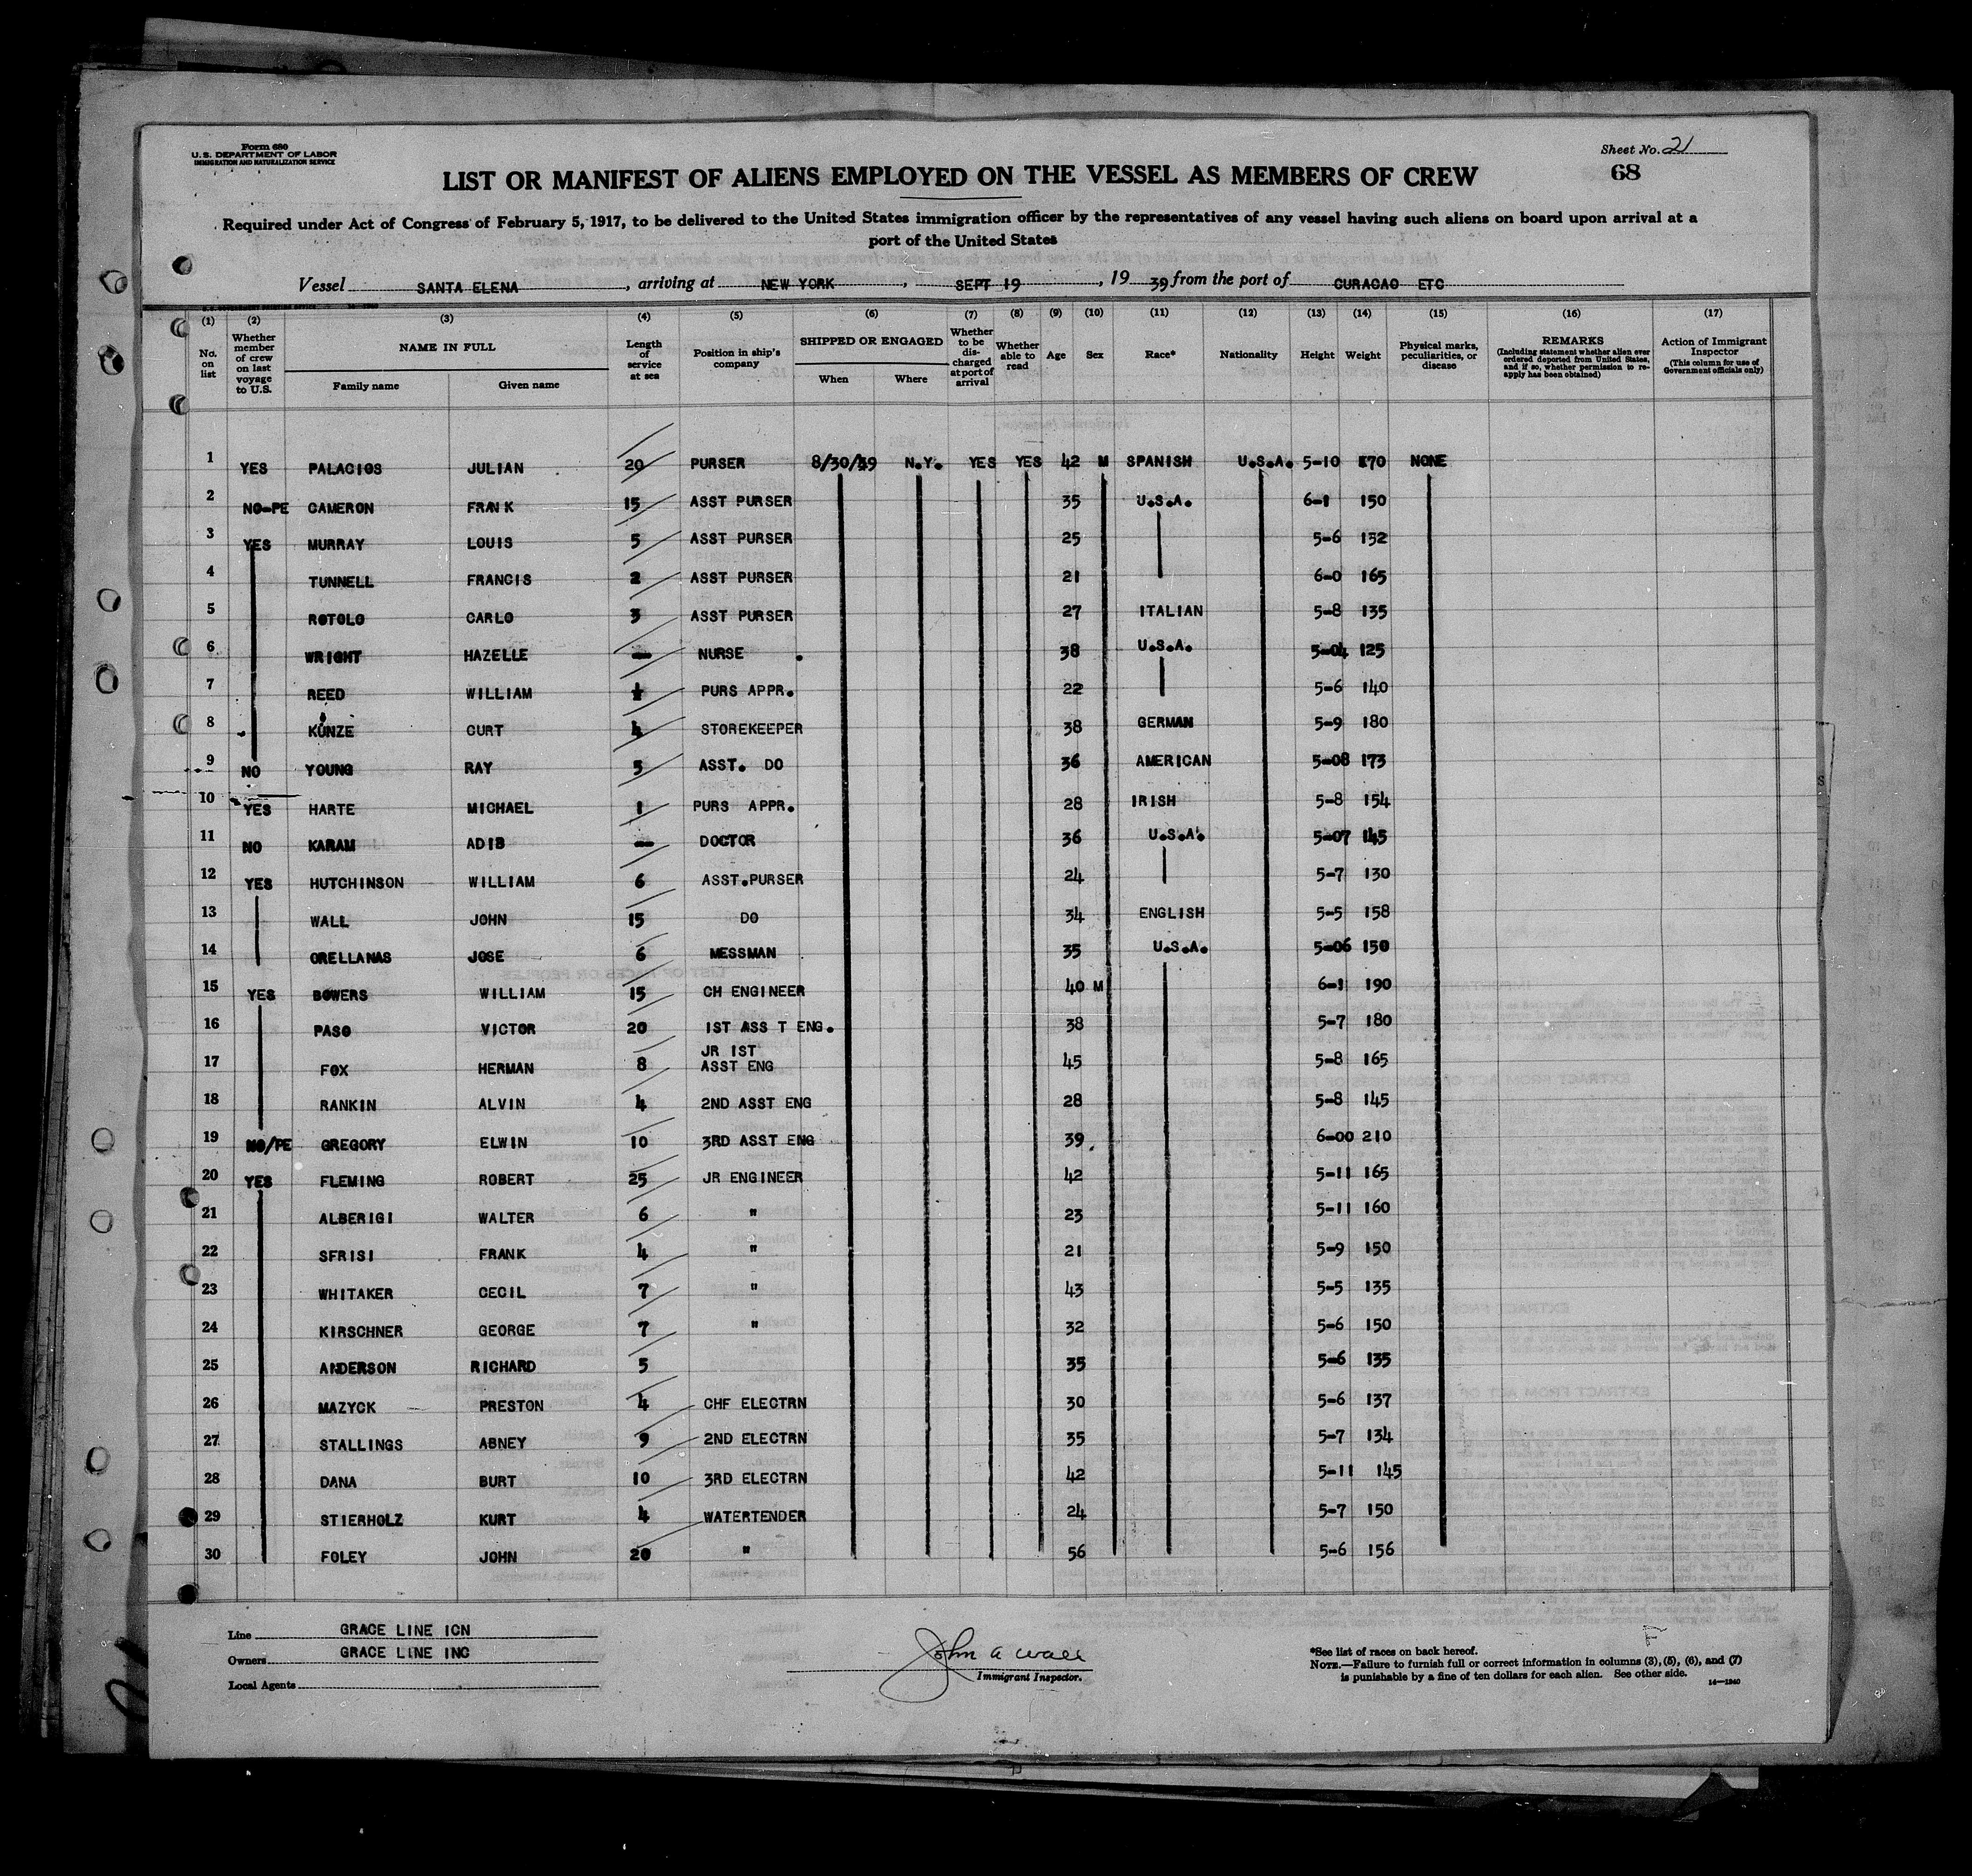 Form 680
U.S. DEPARTMENT OF LABOR
IMMIGRATION AND NATURALIZATION SERVICE
Sheet No. 21
68
LIST OR MANIFEST OF ALIENS EMPLOYED ON THE VESSEL AS MEMBERS OF CREW
Required under Act of Congress of February 5, 1917, to be delivered to the United States immigration officer by the representatives of any vessel having such aliens on board upon arrival at a
port of the United States
Vessel SANTA ELENA, arriving at NEW YORK, SEPT 19, 19 39 from the port of CURACAO ETC
(1) (2) (3) (4) (5) (6) (7) (8) (9) (10) (11) (12) (13) (14) (15) (16) (17)
No. on list
Whether member of crew on last voyage to U.S.
NAME IN FULL
Family name Given name
Length of service at sea
Position in ship's company
SHIPPED OR ENGAGED
When Where
Whether to be discharged at port of arrival
Whether able to read
Age
Sex
Race*
Nationality
Height
Weight
Physical marks, peculiarities, or disease
REMARKS
(Including statement whether alien ever ordered deported from United States, and if so, whether permission to reapply has been obtained)
Action of Immigrant Inspector
(This column for use of Government officials only)
1 YES PALACIOS JULIAN 20 PURSER 8/30/39 N.Y. YES YES 42 M SPANISH U.S.A. 5-10 170 NONE
2 NO-PE CAMERON FRANK 15 ASST PURSER 35 U.S.A. 6-1 150
3 YES MURRAY LOUIS 5 ASST PURSER 25 5-6 132
4 TUNNELL FRANCIS 2 ASST PURSER 21 6-0 165
5 ROTOLO CARLO 3 ASST PURSER 27 ITALIAN 5-8 135
6 WRIGHT HAZELLE — NURSE . 38 U.S.A. 5-04 125
7 REED WILLIAM ½ PURS APPR. 22 5-6 140
8 KUNZE CURT 4 STOREKEEPER 38 GERMAN 5-9 180
9 NO YOUNG RAY 5 ASST. DO 36 AMERICAN 5-08 173
10 YES HARTE MICHAEL 1 PURS APPR. 28 IRISH 5-8 154
11 NO KARAM ADIB — DOCTOR 36 U.S.A. 5-07 145
12 YES HUTCHINSON WILLIAM 6 ASST.PURSER 24 5-7 130
13 WALL JOHN 15 DO 34 ENGLISH 5-5 158
14 ORELLANAS JOSE 6 MESSMAN 35 U.S.A. 5-06 150
15 YES BOWERS WILLIAM 15 CH ENGINEER 40 M 6-1 190
16 PASO VICTOR 20 1ST ASS T ENG. 38 5-7 180
17 FOX HERMAN 8 JR 1ST ASST ENG 45 5-8 165
18 RANKIN ALVIN 4 2ND ASST ENG 28 5-8 145
19 NO/PE GREGORY ELWIN 10 3RD ASST ENG 39 6-00 210
20 YES FLEMING ROBERT 25 JR ENGINEER 42 5-11 165
21 ALBERIGI WALTER 6 " 23 5-11 160
22 SFRISI FRANK 4 " 21 5-9 150
23 WHITAKER CECIL 7 " 43 5-5 135
24 KIRSCHNER GEORGE 7 " 32 5-6 150
25 ANDERSON RICHARD 5 35 5-6 135
26 MAZYCK PRESTON 4 CHF ELECTRN 30 5-6 137
27 STALLINGS ABNEY 9 2ND ELECTRN 35 5-7 134
28 DANA BURT 10 3RD ELECTRN 42 5-11 145
29 STIERHOLZ KURT 4 WATERTENDER 24 5-7 150
30 FOLEY JOHN 20 " 56 5-6 156
Line GRACE LINE ICN
Owners GRACE LINE INC
Local Agents
John A Wall
Immigrant Inspector.
F
*See list of races on back hereof.
NOTE.—Failure to furnish full or correct information in columns (3), (5), (6), and (7)
is punishable by a fine of ten dollars for each alien. See other side.
14—1240